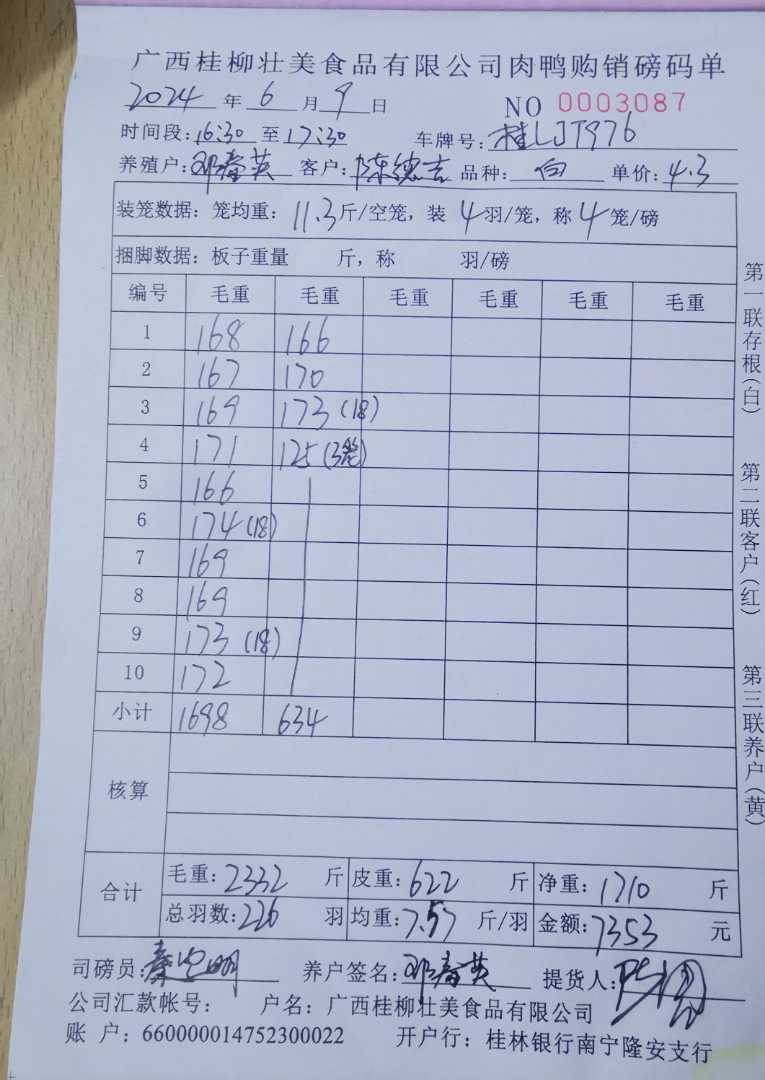 广西桂柳壮美食品有限公司肉鸭购销磅码单
2024 年 6 月 9 日 NO 0003087
时间段: 16:30 至 17:30 车牌号: 桂LJT976
养殖户: 邓春英 客户: 陈德吉 品种: 白 单价: 4.3
装笼数据: 笼均重: 11.3斤/空笼, 装 4羽/笼, 称4笼/磅
捆脚数据: 板子重量 斤, 称 羽/磅
编号 毛重 毛重 毛重 毛重 毛重 毛重
1 168 166
2 167 170
3 169 173 (18)
4 171 125 (3笼)
5 166
6 174 (18)
7 169
8 169
9 173 (18)
10 172
小计 1698 634
核算
合计 毛重: 2332 斤 皮重: 622 斤 净重: 1710 斤
总羽数: 226 羽 均重: 7.57 斤/羽 金额: 7353 元
司磅员: 养户签名: 邓春英 提货人:
公司汇款帐号: 户名: 广西桂柳壮美食品有限公司
账 户: 660000014752300022 开户行: 桂林银行南宁隆安支行
第一联存根(白)
第二联客户(红)
第三联养户(黄)